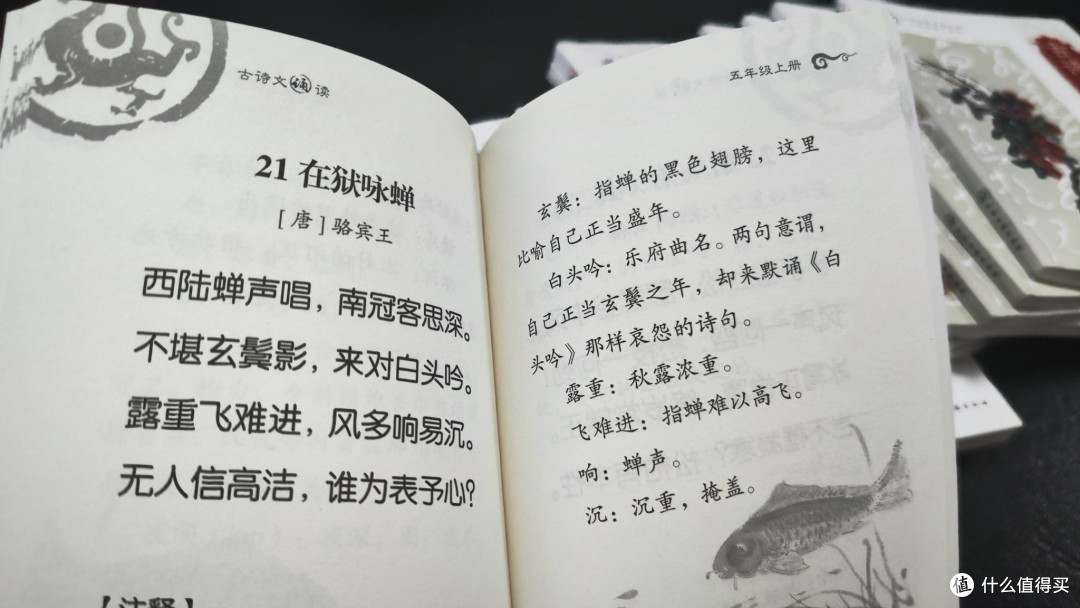 古诗文诵读
21 在狱咏蝉
[唐]骆宾王
西陆蝉声唱，南冠客思深。
不堪玄鬓影，来对白头吟。
露重飞难进，风多响易沉。
无人信高洁，谁为表予心？
【注释】
五年级上册
玄鬓：指蝉的黑色翅膀，这里
比喻自己正当盛年。
白头吟：乐府曲名。两句意谓，
自己正当玄鬓之年，却来默诵《白
头吟》那样哀怨的诗句。
露重：秋露浓重。
飞难进：指蝉难以高飞。
响：蝉声。
沉：沉重，掩盖。
值 什么值得买